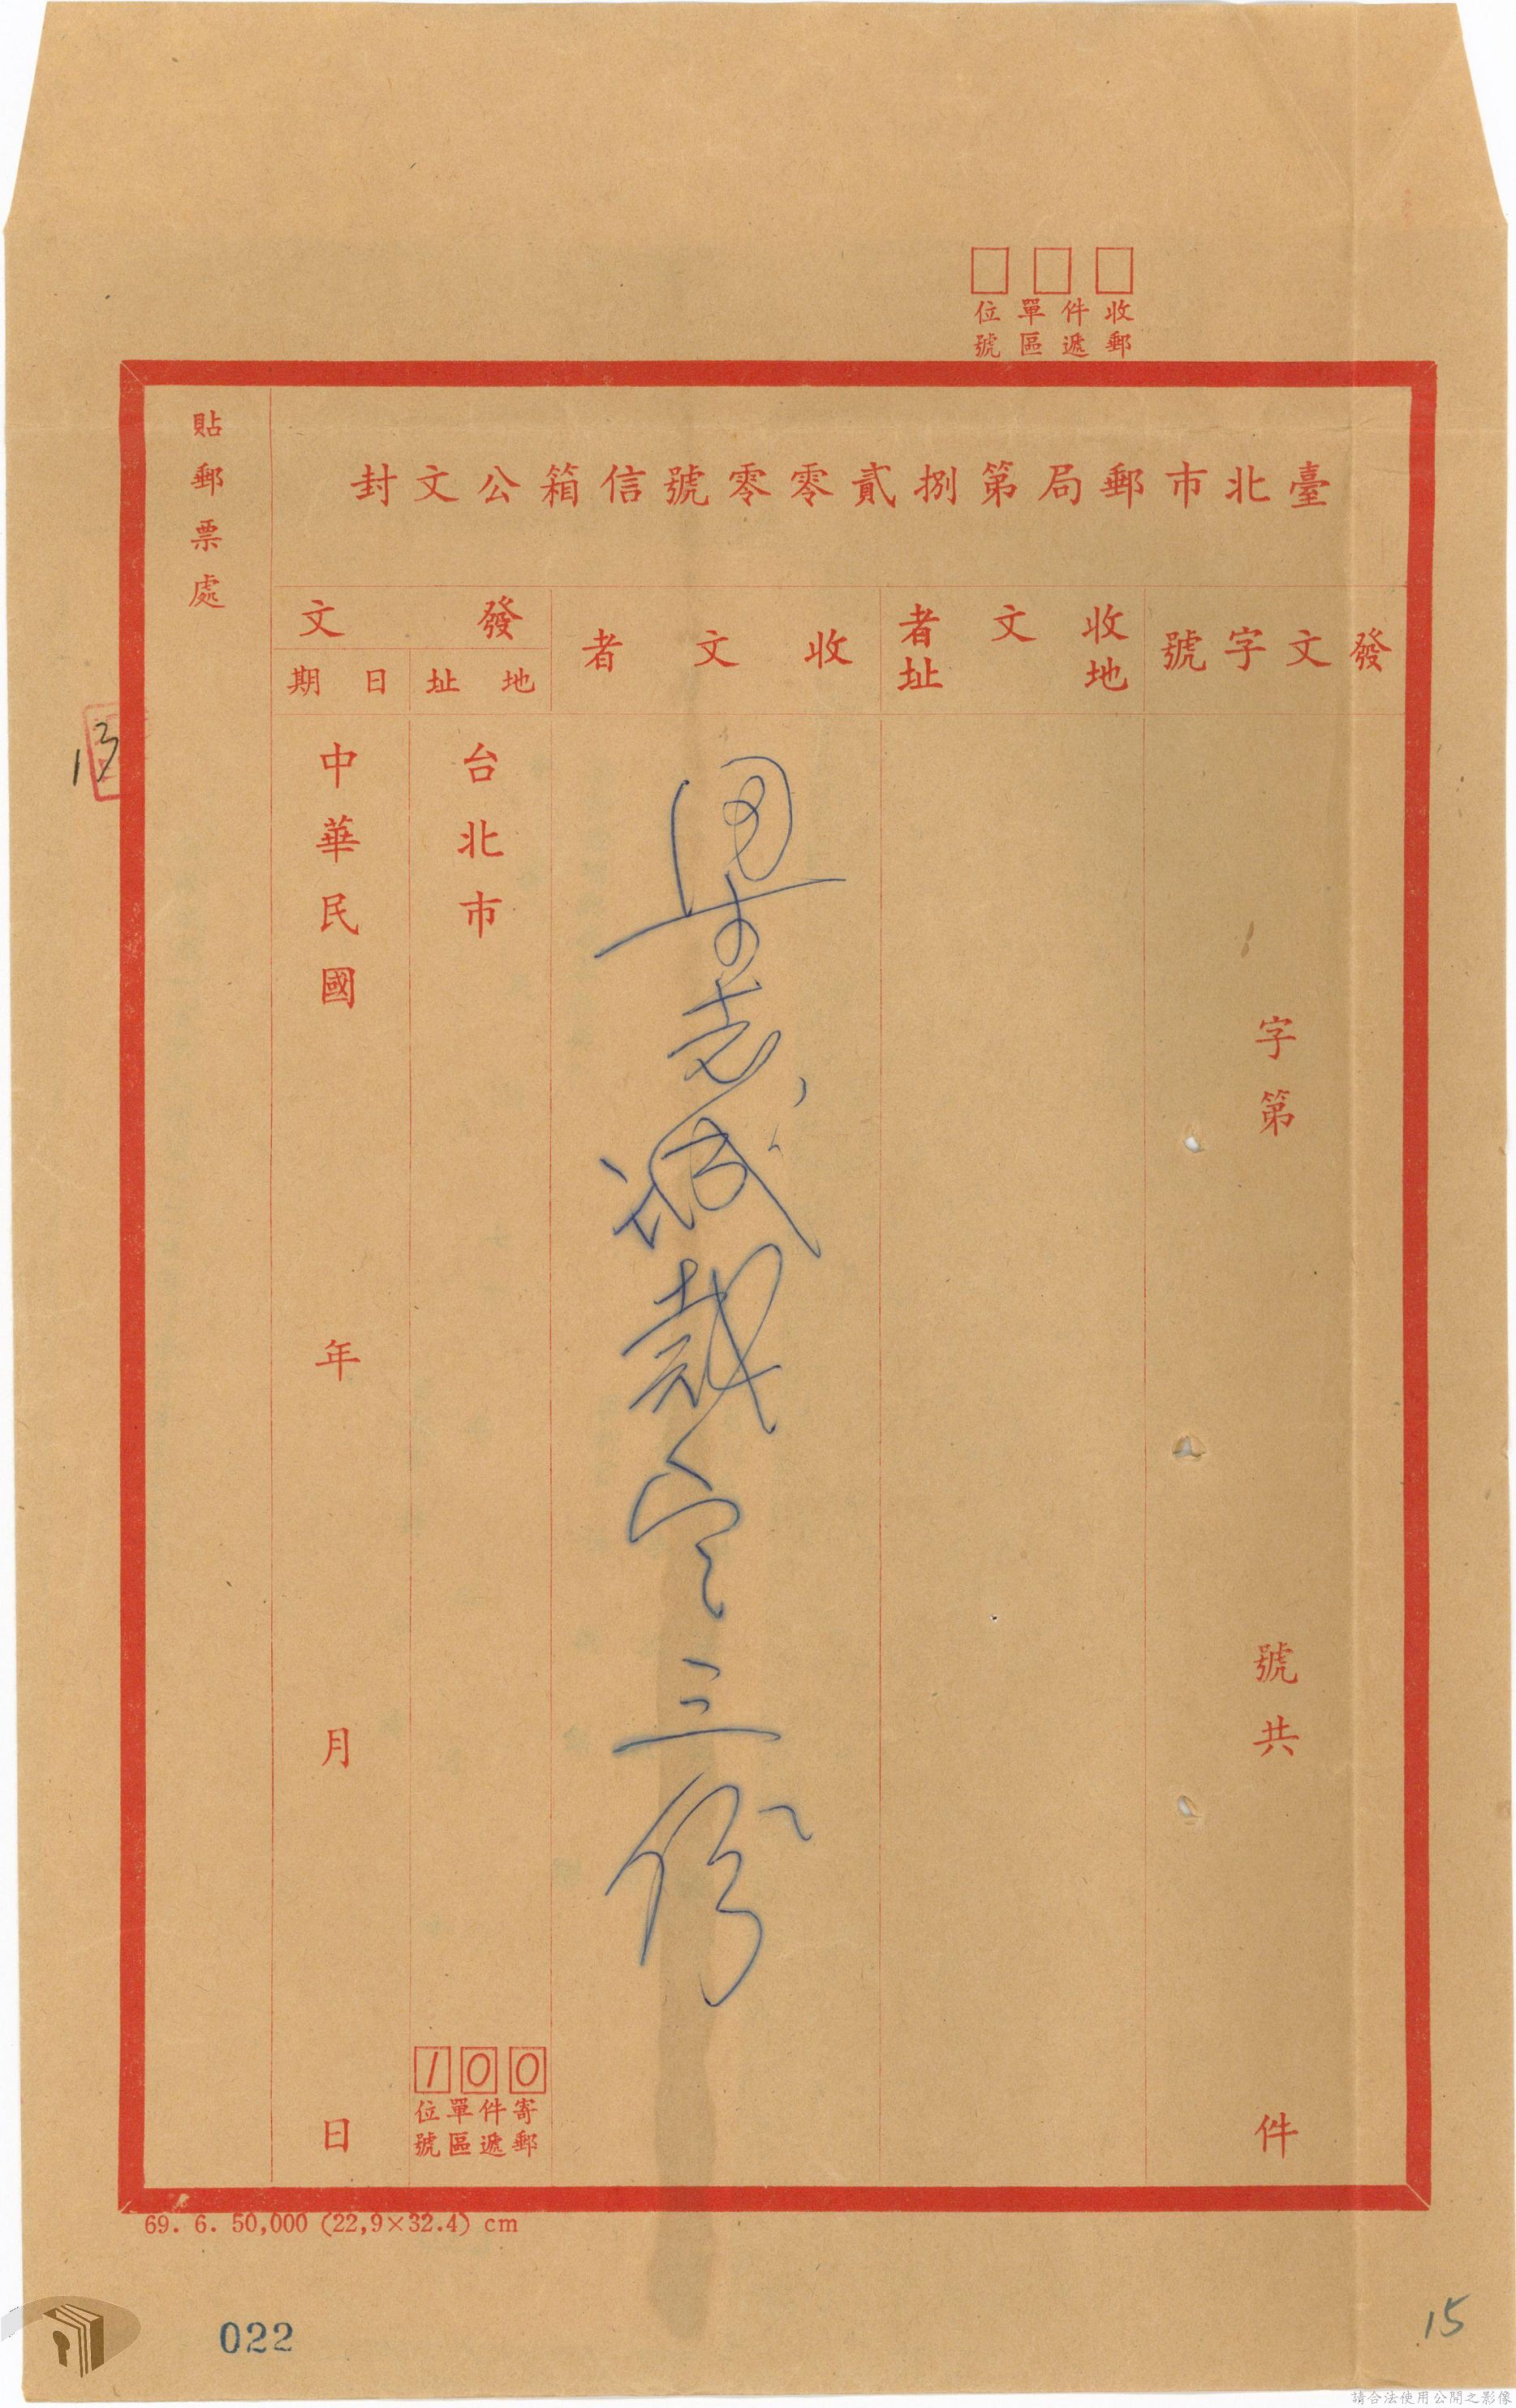 收件單位
郵遞區號
臺北市郵局第捌貳零零號信箱公文封
發文字號
收文者
地址
收文者
發文
地址
日期
字第
號共
件
志誠裁定三份
台北市
100
寄件單位
郵遞區號
中華民國
年
月
日
貼郵票處
13
69. 6. 50,000 (22,9×32.4) cm
022
15
請合法使用公開之影像